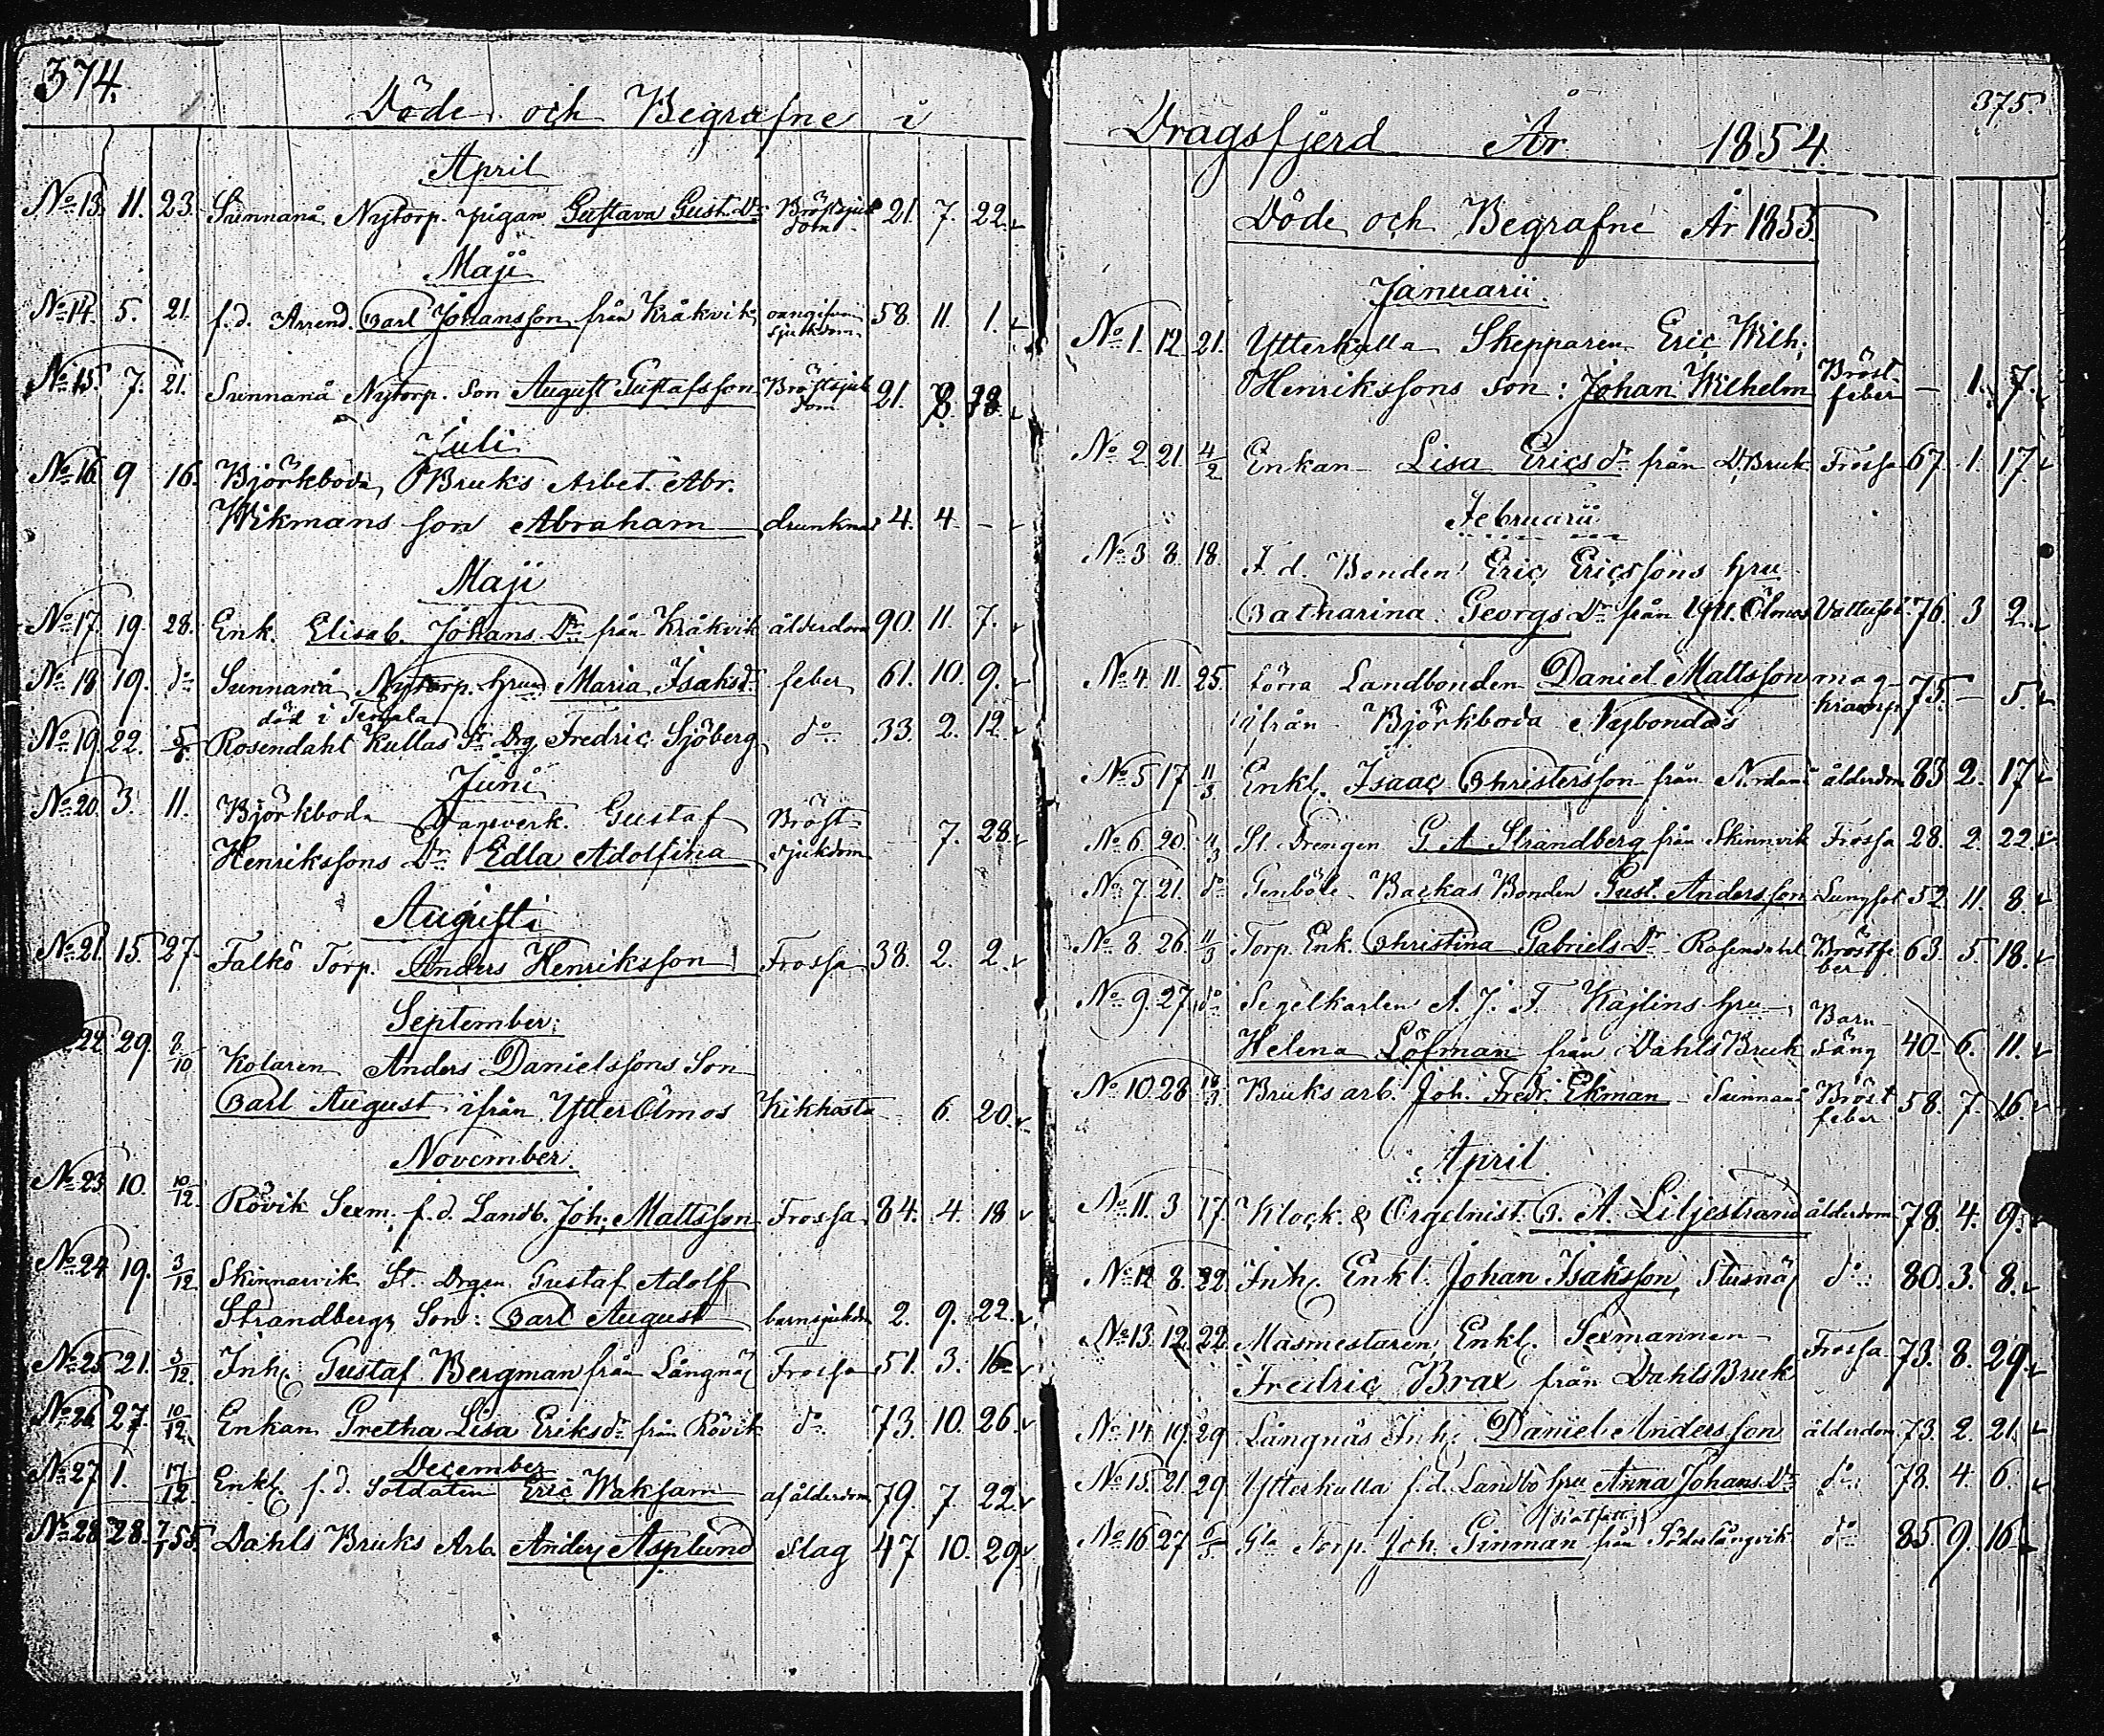 374.
Döde och Begrafne i
April
No 13. 11. 23. Sunnanå Nytorp. pigan Gustava Gust.Dr Bröstsjuk 21. 7. 22.
dom
Maji
No 14. 5. 21. f.d. Arrend. Carl Johansson från Kråkvik oangifven 58. 11. 1.
sjukdom
No 15 7. 21. Sunnanå Nytorp. Son August Gustafsson Bröstsjuk 21. 8.
dom
Juli
No 16. 9 16. Björkboda Bruks Arbet. Abr.
Wikmans son Abraham drunknad 4. 4 -
Maji
No 17. 19 28. Enk. Elisab. Johans Dr från Kråkvik ålderdom 90. 11. 7.
No 18 19. do Sunnanå Nytorp. hru Maria Isaksdr feber 61. 10. 9.
död i Tenala
No 19. 22. Rosendahl Kullas St. Drg Fredric Sjöberg do 33. 2. 12.
Juni
No 20. 3. 11. Björkboda Gustaf Bröst-
Henrikssons Dr Edla Adolfina sjukdom - 7. 28.
Augusti
No 21. 15. 27. Falkö Torp. Anders Henriksson Frossa 38. 2. 2.
September.
22. 29. 8/10 Kolaren Anders Danielssons Son
Carl August ifrån Ytter Ölmos Kikhosta - 6. 20.
November.
No 23 10. 10/12 Rövik Sexm. f.d. Landb. Joh. Mattsson Frossa 84. 4. 18
No 24 19. 3/12 Skinnarvik St. Drgn Gustaf Adolf
Strandbergs Son: Carl August barnsjukdm 2. 9. 22.
No 25 21. 3/12. Inh. Gustaf Bergman från Långnäs Frossa 51. 3. 16
No 26 27. 10/12. Enkan Gretha Lisa Eriksdr från Rövik do 73. 10. 26.
December
No 27 1. 17/12. Enkl. f.d. Soldaten Eric Waksam af ålderdom 79. 7. 22
No 28 28. 7/1 55. Dahls Bruks Arb. Anders Asplund slag 47 10. 29
375.
Dragsfjerd År 1854.
Döde och Begrafne År 1855.
Januarii.
No 1. 12 21. Ytterkulla Skepparen Eric Wilh.
Henrikssons son: Johan Wilhelm Bröst- feber - 1. 7.
No 2 21. 4/2 Enkan Lisa Ericsdr från D.Bruk Frossa 67. 1. 17.
Februarii
No 3 8. 18. F.d. Bonden Eric Ericssons hru
Catharina Georgs Dr från Ytt. Ölmos Vattusot 76. 3 2.
No 4 11 25. förra Landbonden Daniel Mattsson mag- 75. - 5.
ifrån Björkboda Nybondas kramp
No 5 17 11/3 Enkl. Isaac Christersson från Nordanå ålderdom 83 2. 17
No 6 20. 11/3 St. Drengen G A Strandberg från Skinnvik Frossa 28. 2. 22.
No 7. 21. do Genböle Backas Bonden Gust. Andersson Lungsot 52. 11. 8.
No 8. 26. 11/3 Torp. Enk. Christina Gabriels Dr Rosendahl Bröstfe 63. 5. 18.
ber
No 9. 27. do Segelkarlen A. J. F. Kajlins hru Barn-
Helena Löfman från Dahls Bruk säng 40. 6. 11.
No 10. 28 18/3 Bruks arb. Joh. Fredr. Ekman Sunnanå Bröst 58. 7. 16.
feber
April.
No 11. 3 17. Klock. & Orgelnist. C. A. Liljestrand ålderdom 78. 4. 9.
No 12 8. 22. Inh. Enkl. Johan Isaksson Stusnäs do 80. 3. 8.
No 13. 12. 22. Masmestaren Enkl. Sexmannen
Fredric Brax från Dahls Bruk Frossa 73. 8. 29.
No 14 19. 29 Långnäs Inh. Daniel Andersson ålderdom 73. 2. 21
No 15. 21. 29. Ytterkulla f.d. Landbo hru Anna Johans.Dr do 78. 4. 6.
No 16 27 6/5 Gla Torp. Joh. Ginman från Söderlångvik do 85. 9. 16